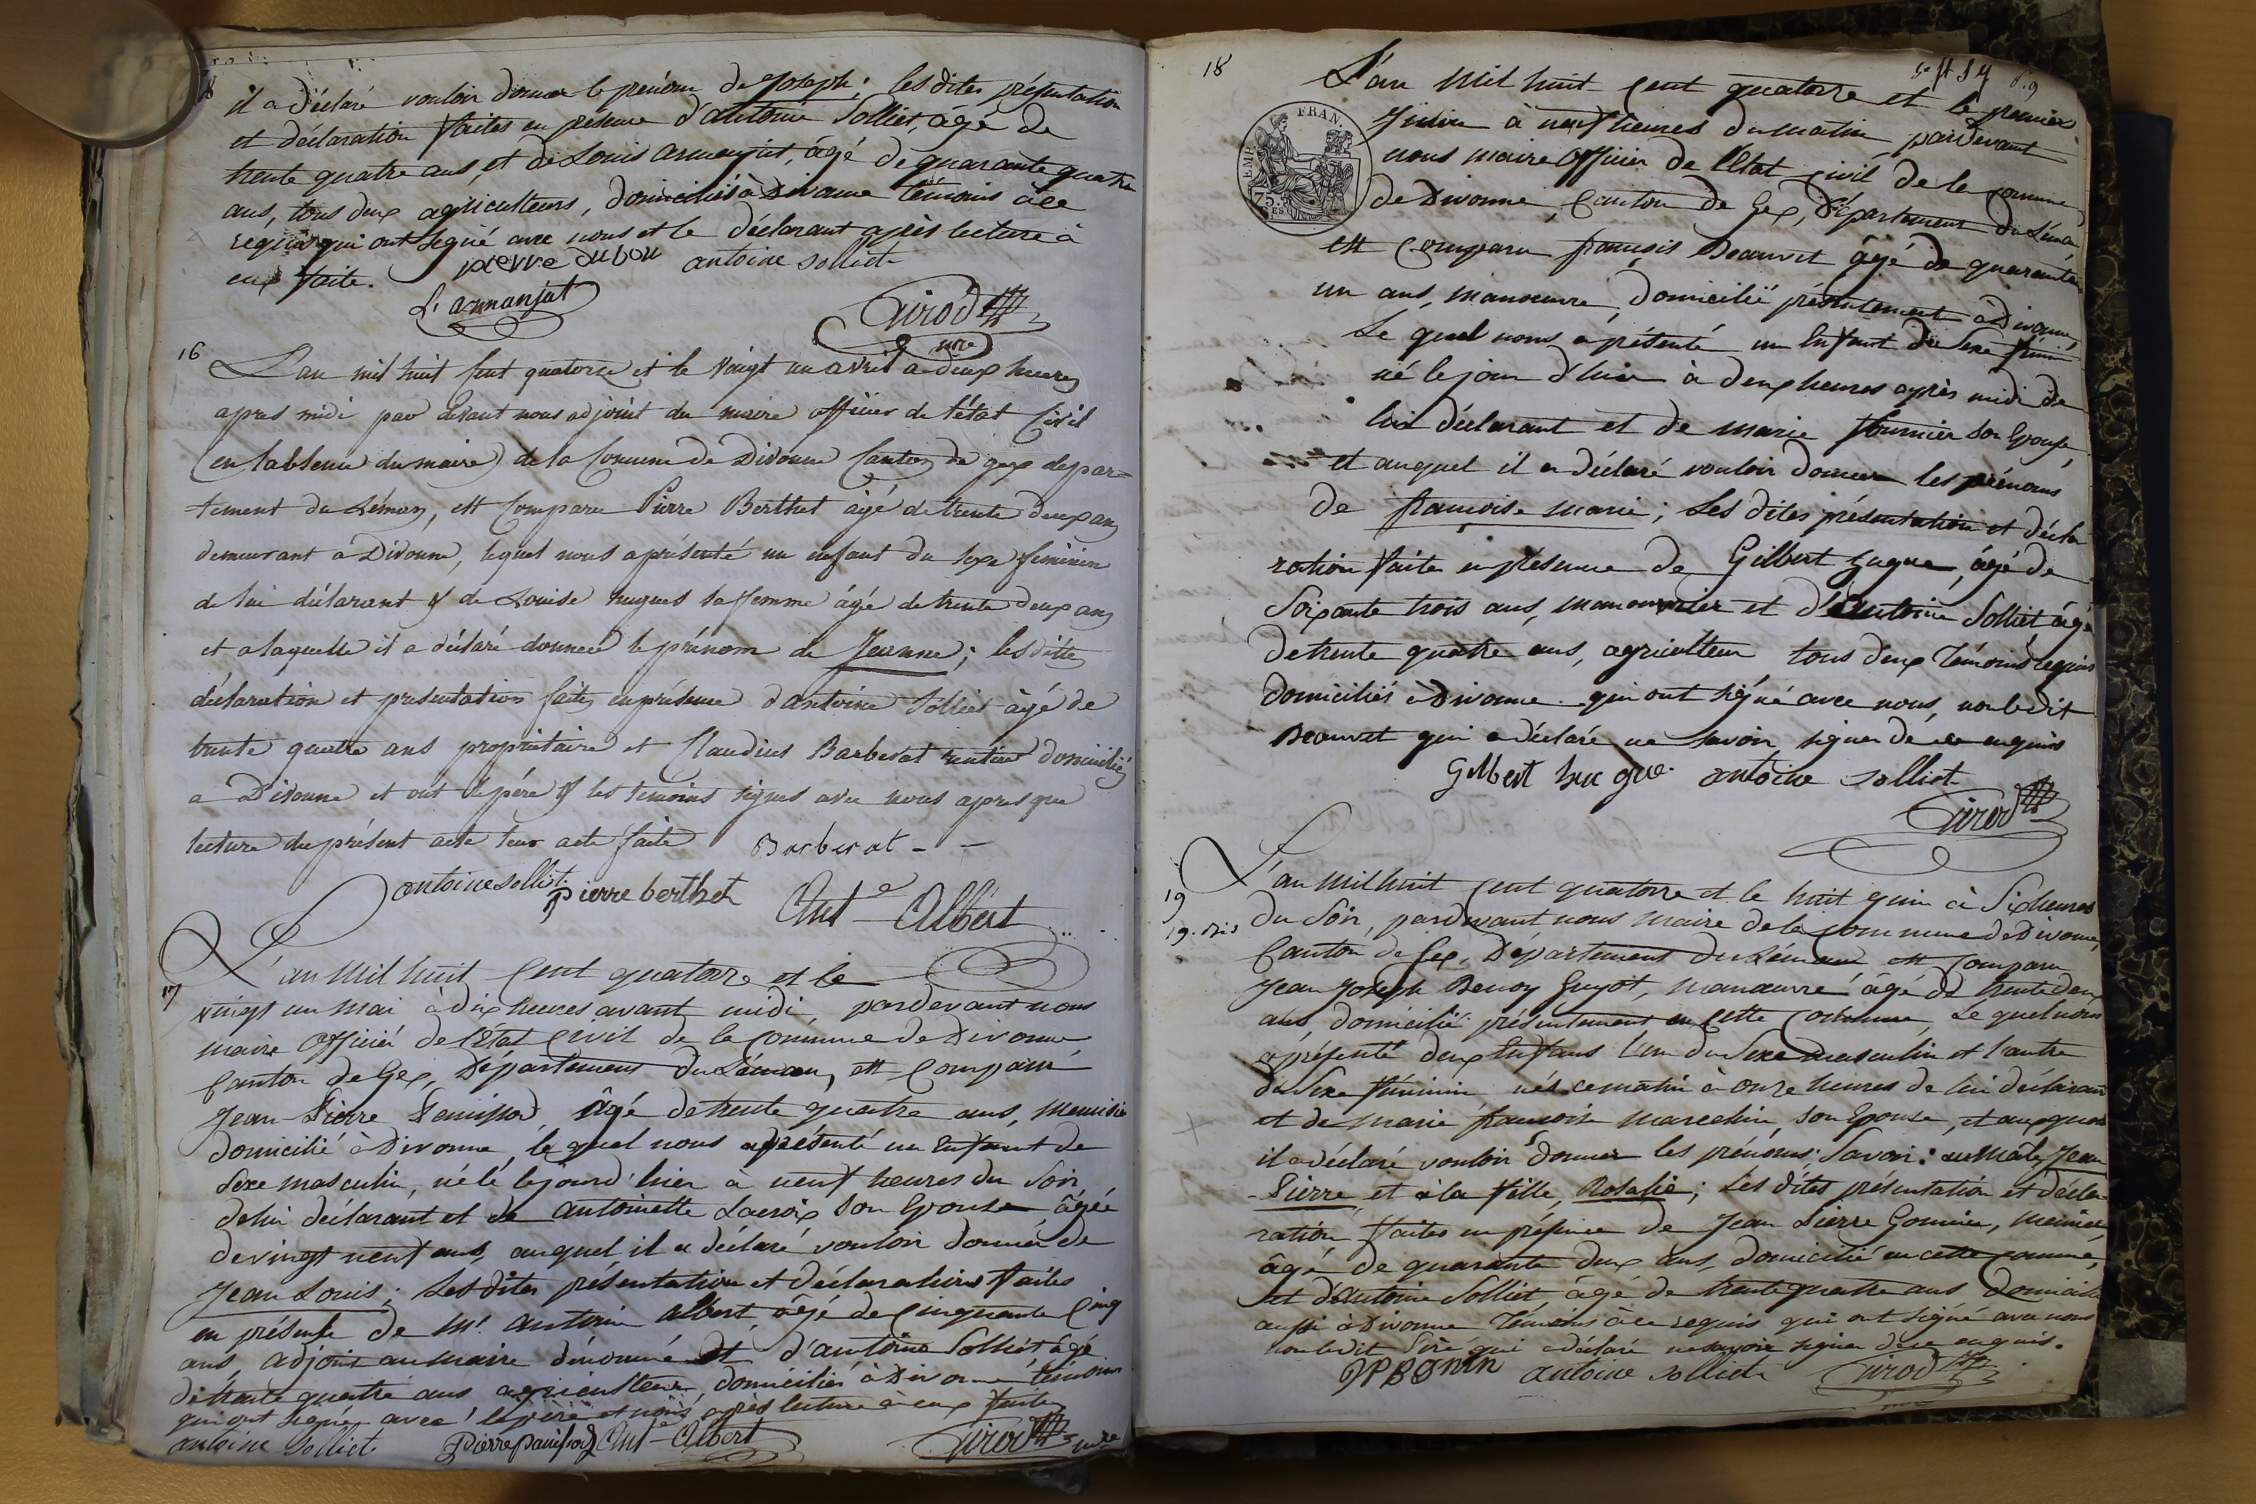 il a déclaré vouloir donner le prénom de Joseph; les dites présentation
et déclaration faites en présence d'antoine Solliet, âgé de
trente quatre ans, et de Louis armanjat, âgé de quarante quatre
ans, tous deux agriculteurs, domiciliés à Divonne témoins à ce
réquis qui ont signé avec nous et le déclarant après lecture à
eux faite. pierre dubou antoine solliet
L. armanjat Girod
mre
16
L'an mil huit cent quatorze et le vingt un avril a deux heures
apres midi par devant nous adjoint du maire officier de l'état Civil
(en l'absence du maire) de la Comune de Divonne Canton de gex depar=
tement du Léman, est Comparu Pierre Berthet âgé de trente deux ans
demeurant a Divonne, lequel nous a présenté un enfant du sexe feminin
de lui déclarant & de Louise hugues sa femme âgé de trente deux ans
et a laquelle il a déclaré donner le prénom de Jeanne; les dittes
déclaration et presentation faites en présence d'antoine Solliet âgé de
trente quatre ans propriétaire et Claudius Barberat rentier domiciliés
a Divonne et ont le père & les temoins signés avec nous apres que
lecture du présent acte leur acte faite Barberat - -
antoine solliet pierre berthet Ant-e Albert
17
L'an Mil huit Cent quatorze et le
vingt un mai à dix heures avant midi, pardevant nous
maire Officier de l'Etat Civil de la Commune de Divonne
Canton de Gex, Département du Léman, est Comparu
Jean-Pierre Panissod âgé de trente quatre ans, Menuisier
domicilié à Divonne, le quel nous a présenté un Enfant de
Sexe masculin, né le jour d'hier à neuf heures du Soir,
de lui déclarant et de antoinette Lacroix son Epouse âgée
de vingt neuf ans, auquel il a déclaré vouloir donner de
Jean Louis; Les dites présentation et déclarations faites
en présence de Mr. antoine albert, âgé de Cinquante Cinq
ans, adjoint au maire et d'antoine Solliet âgé
de trente quatre ans agriculteur, domiciliés à Divonne témoins
qui ont signé avec le père et nous après lecture à eux faite
antoine Solliet Pierre panissod Ant-e Albert Girod mre
18
L'an Mil huit Cent quatorze et le premier
Juin à neuf heures du matin pardevant
nous maire Officier de l'Etat Civil de la Comune
de Divonne, Canton de Gex, Département du Léman
est Comparu françois Beauvet âgé de quarante
un ans, manoeuvre, domicilié présentement à Divonne,
Le quel nous a présenté un Enfant du Sexe fémin
né le jour d'hier à deux heures après midi de
lui déclarant et de marie fournier son Epouse,
et auquel il a déclaré vouloir donner les prénoms
de françoise marie; Les dites présentation et décla
ration faites en présence de Gilbert hugue, âgé de
Soixante trois ans, manouvrier et d'Antoine Solliet âgé
de trente quatre ans, agriculteur tous deux témoins requis
domiciliés à Divonne qui ont signé avec nous, non ledit
Beauvet qui a déclaré ne savoir signer de ce enquis
Gilbert huc gue. antoine solliet
Girod
EMP. FRAN.
75.
19
19. bis
L'an Mil huit Cent quatorze et le huit juin à Six heures
du Soir, pardevant nous maire de la Commune de Divonne,
Canton de Gex, Département du Léman est Comparu
Jean Joseph Benoy Guyot, manoeuvre âgé de trente deux
ans, domicilié présentement en cette Commune, Le quel nous
a présenté deux Enfans l'un du Sexe masculin et l'autre
du Sexe féminin nés ce matin à onze heures de lui déclarant
et de marie françoise marechin, son Epouse, et auxquels
il a déclaré vouloir donner les prénoms; Savoir: au Mâle, Jean
-Pierre, et à la fille, Rosalie; Les dites présentation et décla
ration faites en présence de Jean Pierre Gonnin, Menuier,
âgé de quarante deux ans, domicilié en cette comune,
et d'Antoine Solliet, âgé de trente quatre ans domicilié
aussi à Divonne Témoins à ce requis qui ont signé avec nous
non ledit Père qui a déclaré ne savoir signer de ce enquis.
antoine solliet Girod